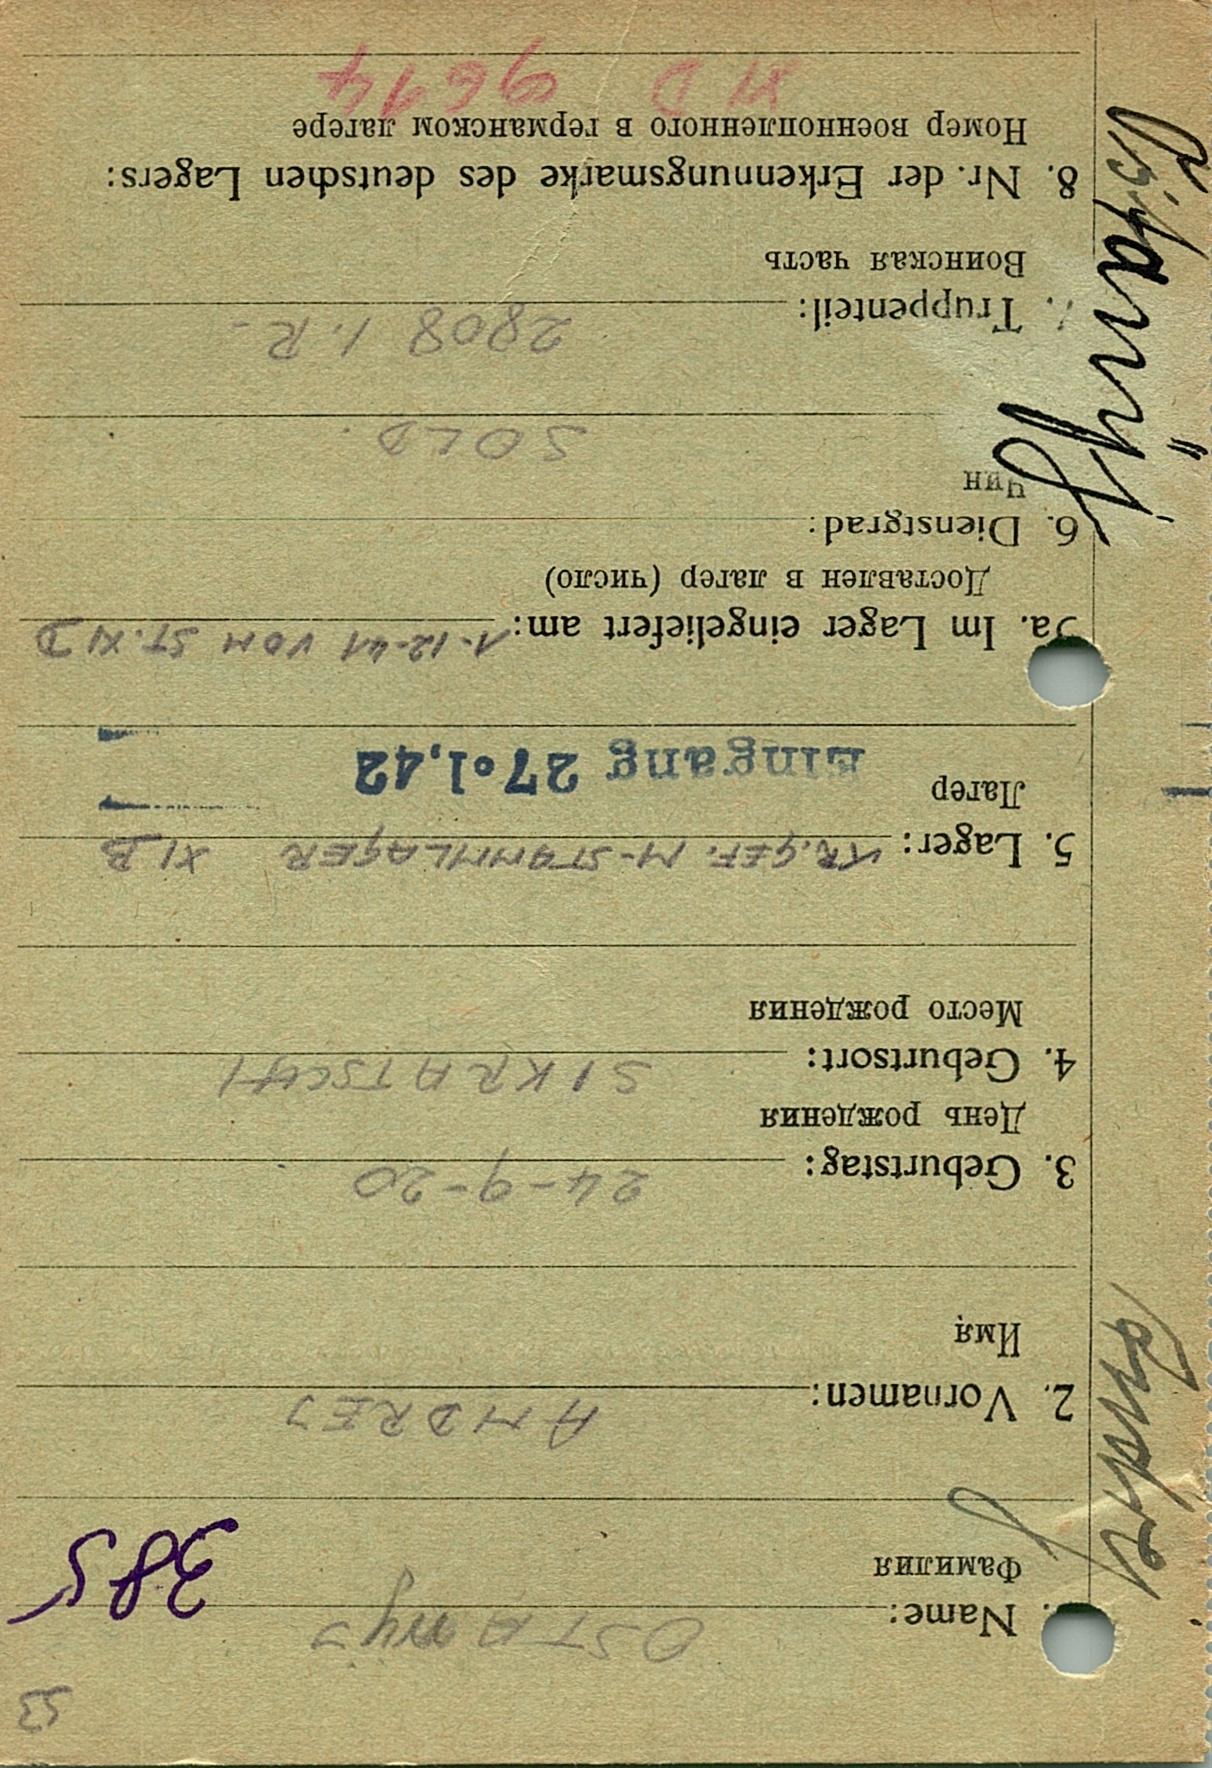 53
385
1. Name: OSTAnyj
Фамилия
2. Vornamen: ANDREJ
Имя
3. Geburtstag: 24-9-20
День рождения
4. Geburtsort: SIKRATSCHI
Место рождения
5. Lager: KR.GEF. M-STAMMLAGER XI B
Лагер
Eingang 27.1.42
5a. Im Lager eingeliefert am: 1-12-41 VOM ST. XI D
Доставлен в лагер (число)
6. Dienstgrad:
Чин
SOLD.
7. Truppenteil: 2808 I.R-
Воинская часть
8. Nr. der Erkennungsmarke des deutschen Lagers:
Номер военнопленного в германском лагере
XI D 9614
Ostanyj
Andrej